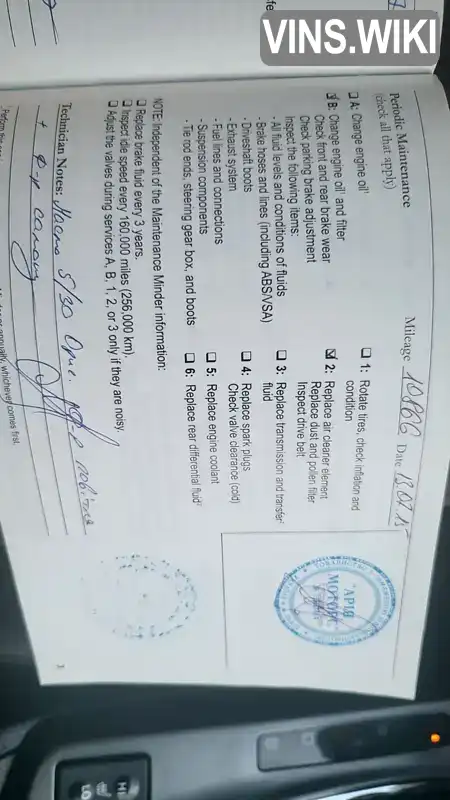 VINS.WIKI
Periodic Maintenance
(check all that apply)
Mileage 10866 Date 13.02.15
A: Change engine oil¹
B: Change engine oil¹ and filter
Check front and rear brake wear
Check parking brake adjustment
Inspect the following items:
- All fluid levels and conditions of fluids
- Brake hoses and lines (including ABS/VSA)
- Driveshaft boots
- Exhaust system
- Fuel lines and connections
- Suspension components
- Tie rod ends, steering gear box, and boots
1: Rotate tires, check inflation and
condition
2: Replace air cleaner element
Replace dust and pollen filter
Inspect drive belt
3: Replace transmission and transfer²
fluid
4: Replace spark plugs
Check valve clearance (cold)
5: Replace engine coolant
6: Replace rear differential fluid²
NOTE: Independent of the Maintenance Minder information:
Replace brake fluid every 3 years.
Inspect idle speed every 160,000 miles (256,000 km).
Adjust the valves during services A, B, 1, 2, or 3 only if they are noisy.
Technician Notes: Масло 5/30
+ ф-р салону
whichever comes first.
АРІЯ
МОТОРС
HI
LO